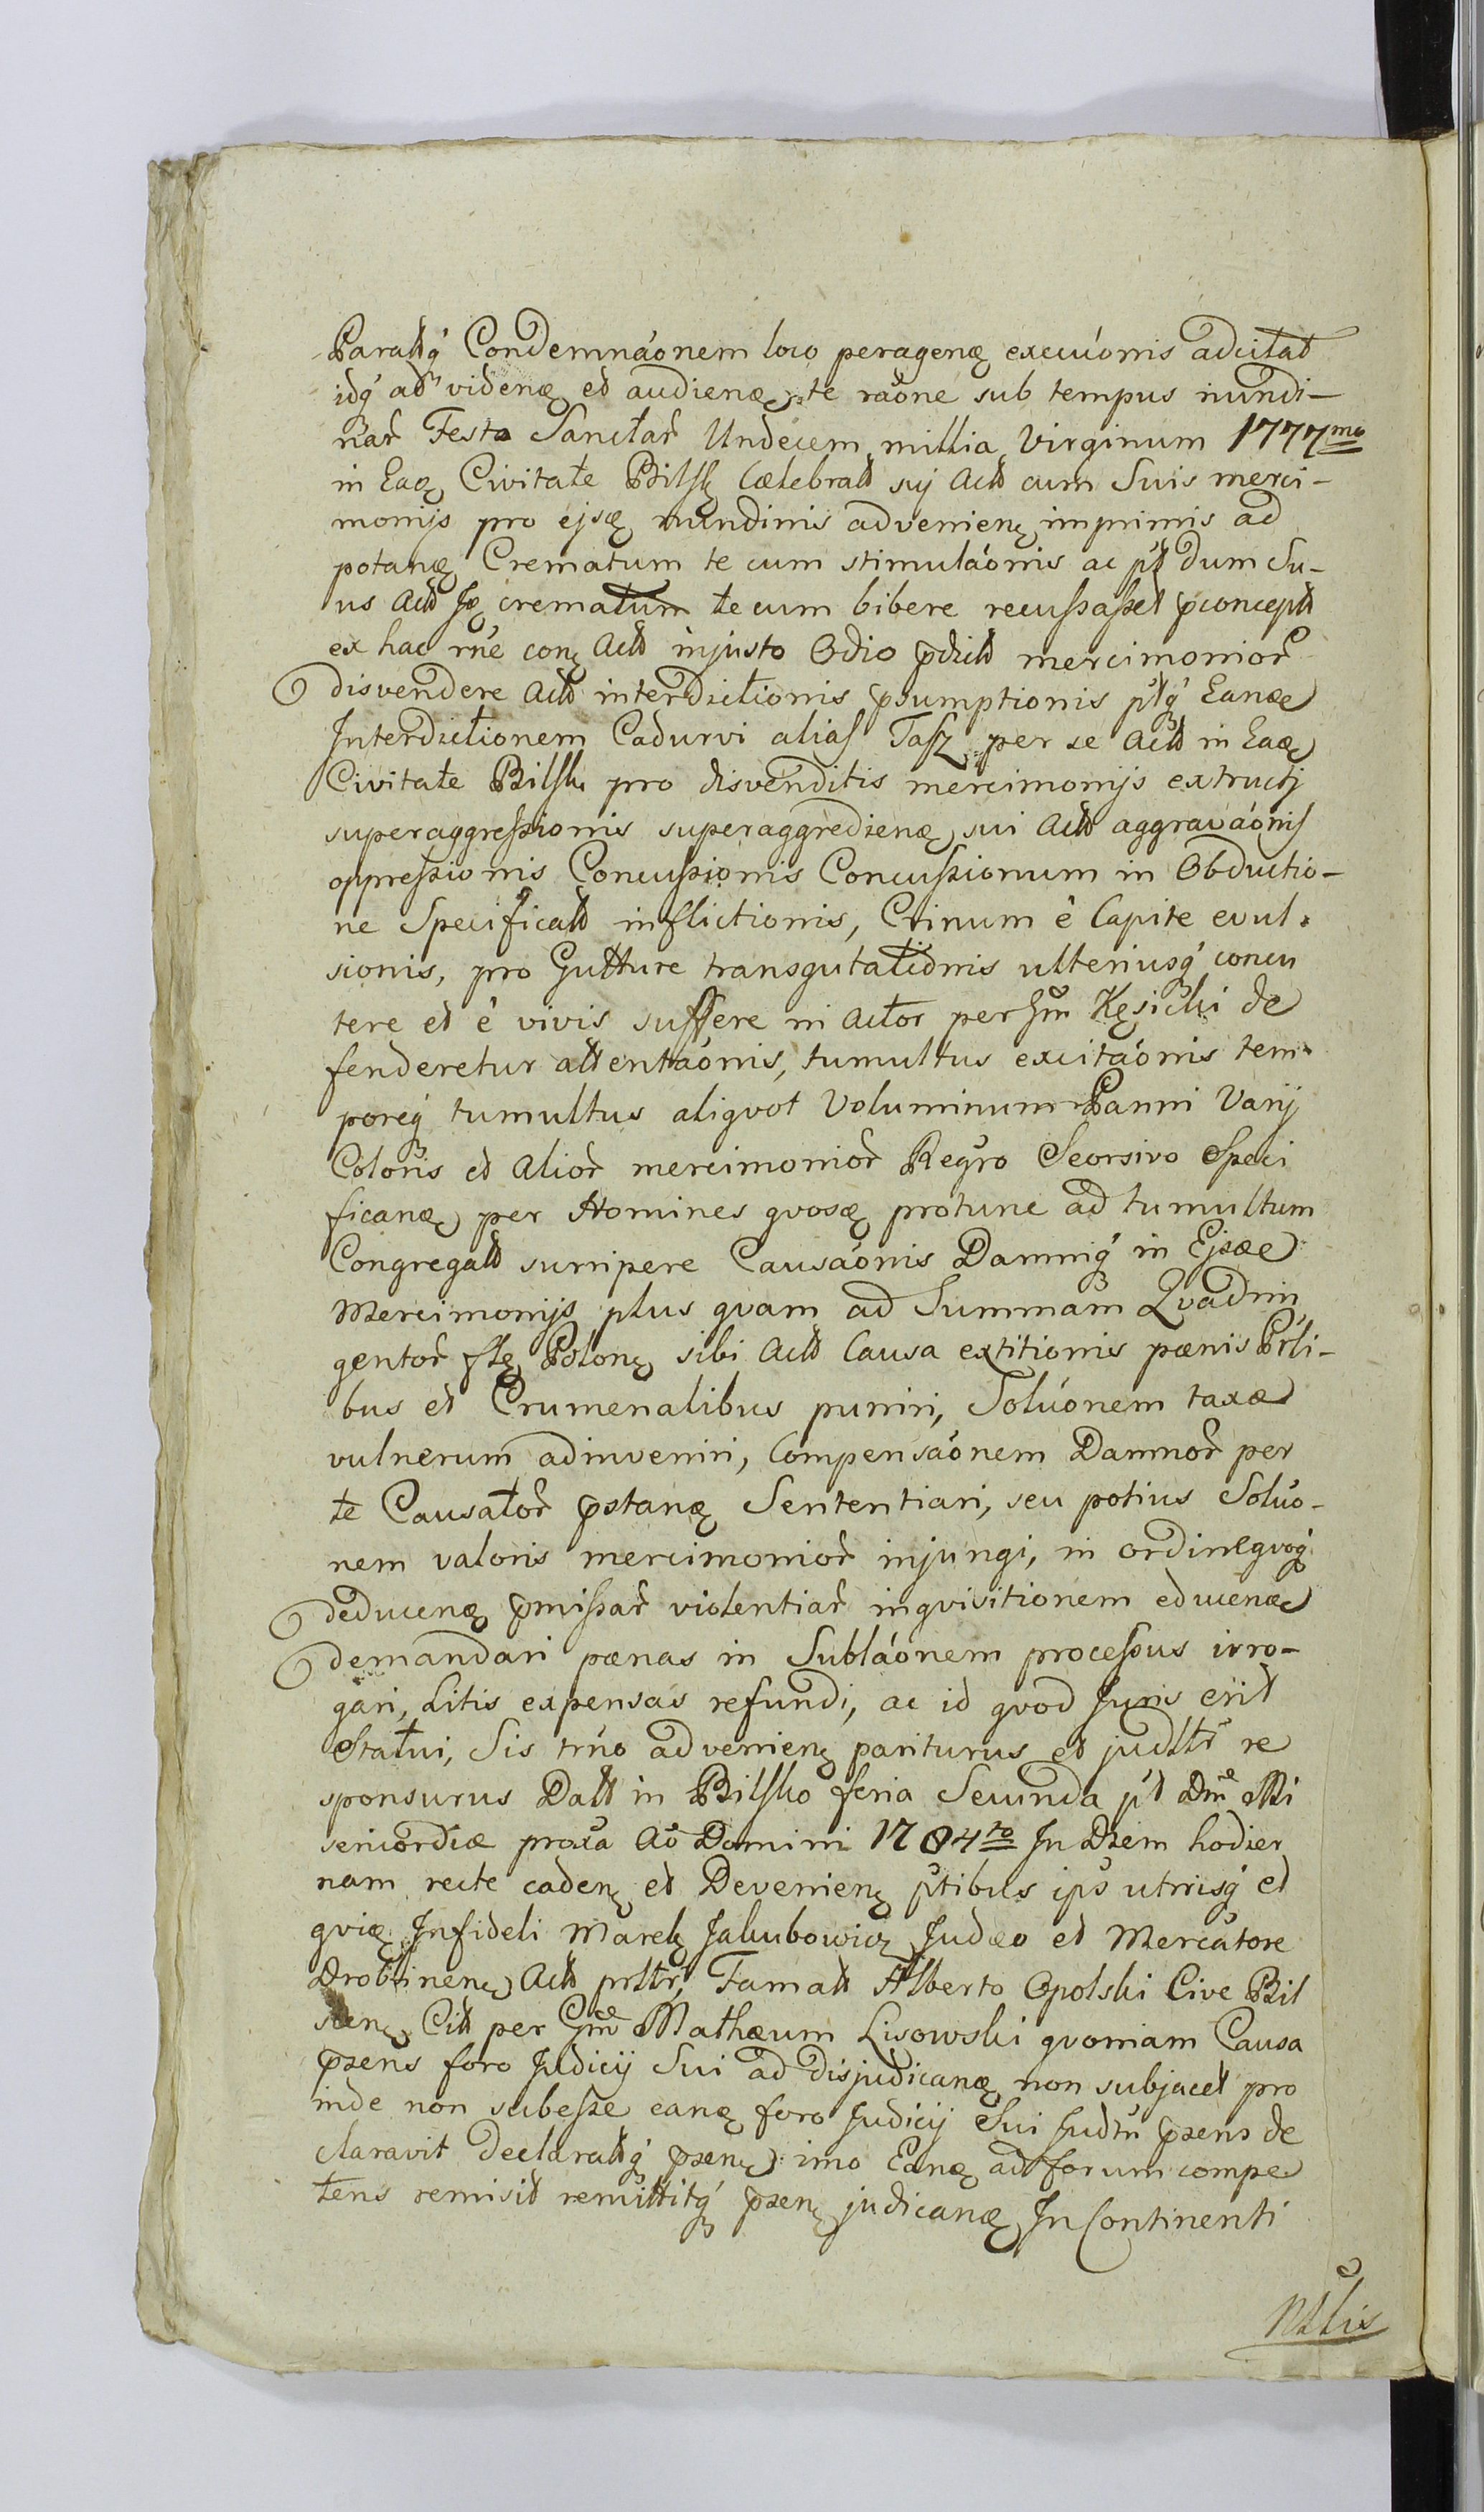 Paratq́ Condemnáonem loco peragenę execuónis adcitat
idq́ ad videnę et audienę te ráone sub tempus nundi-
nar̃ Festo Sanctar̃ Undecem millia Virginum 1777mo
in Eaq Civitate Bilsk Cœlebratt sui Actt cum Suis merci-
monijs pro ejsę nundinis advenienę imprimis ad
potanę Crematum te cum stimuláonis ac p̃t dum Su-
us Actt Ję crematum te cum bibere recussasset p̃conceptt
ex hac rñe conę Actt injusto Odio p̃dictt mercimonior̃
disvendere Actt interdictionis p̃sumptionis p̃tq́ Eanæ
Interdictionem Cadurvi alias Tasz per se Actt in Eaę
Civitate Bilsk pro disvenditis mercimonijs extructj
superaggressionis superaggredienę sui Actt aggraváonis
oppressionis Concussionis Concussionum in Obductio-
ne Specificatt inflictionis, Crinum è Capite evul-
sionis, pro Gutture transgutationis ulteriusq́ concu
tere et è vivis suffere ni Actor per Gm̃ Kęsicki de
fenderetur attentáonis, tumultus excitáonis tem-
poreq́ tumultus aliqvot Voluminum Panni Varij
Coloris et Alior̃ mercimonior̃ Regr̃o Seorsivo Speci
ficanę per Homines qvosę protunc ad tumultum
Congregatt surripere Causáonis Damniq́ in Ejsæ
Mercimonijs plus qvam ad Summam Qvadrin
gentor̃ flę Polonę sibi Actt Causa extitionis pœnis Pr̃li-
bus et Crumenalibus puniri, Solúonem taxæ
vulnerum adinveniri, Compensáonem Damnor̃ per
te Causator̃ p̃stanę Sententiari, seu potius Solúo-
nem valoris mercimonior̃ injungi, in ordineqvoq́
deducenę p̃missar̃ violentiar̃ inqvisitionem educenæ
demandari pœnas in Subláonem processus irro-
gari, Litis expensas refundi, ac id qvod Juris erit
Statui, Sis trño advenienę pariturus et judltr̃ re
sponsurus Datt in Bilsko feria Secunda p̃t Dm̃ Mi
sericordiæ proxa Aõ Domini 1784to In Diem hodier
nam recte cadenę et Devenienę p̃tibus ip̃s utrisq́ et
qvię Infideli Marek Jakubowicz Judæo et Mercatore
Drobinenę Actt prltr̃, Famatt Alberto Opolski Cive Bil
skenę Citt per Gm̃ Mathæum Lisowski qvoniam Causa
p̃sens foro Judicij Sui ad disjudicanę non subjacet pro
inde non subesse eanę foro Judicij Sui Judm̃ p̃sens de
claravit declaratq́ p̃senę imo Eanę ad forum compe
tens remisit remittitq́ p̃senę judicanę In Continenti
Nttlis